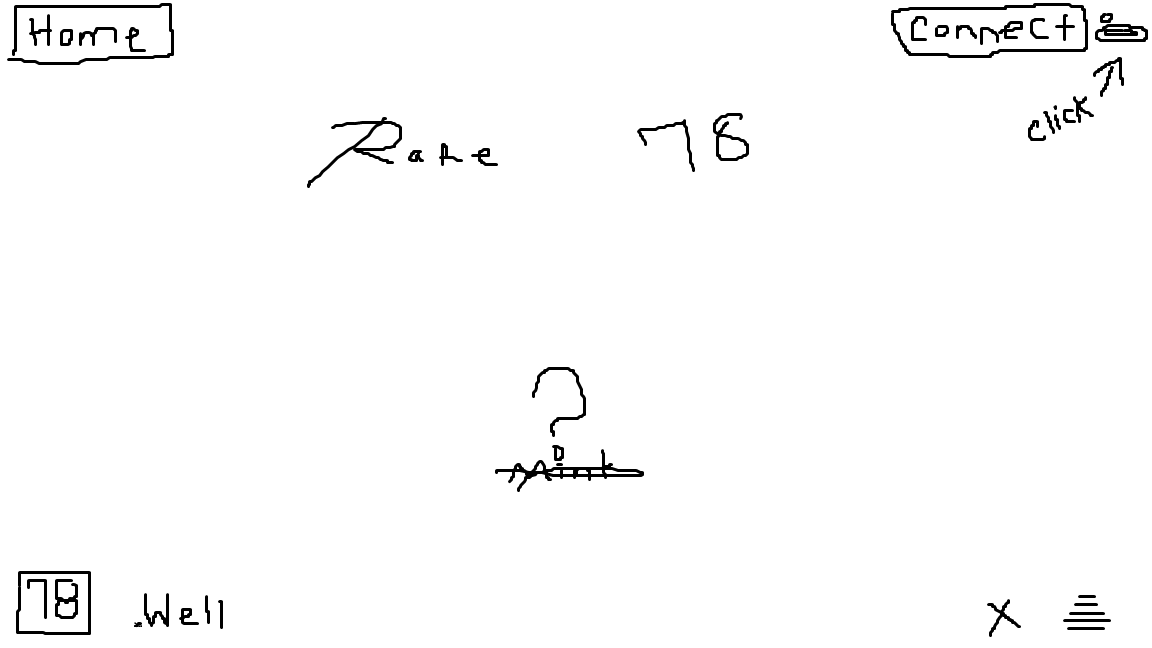 Home
Connect
click
Rare 78
?
Mint
78 .Well X